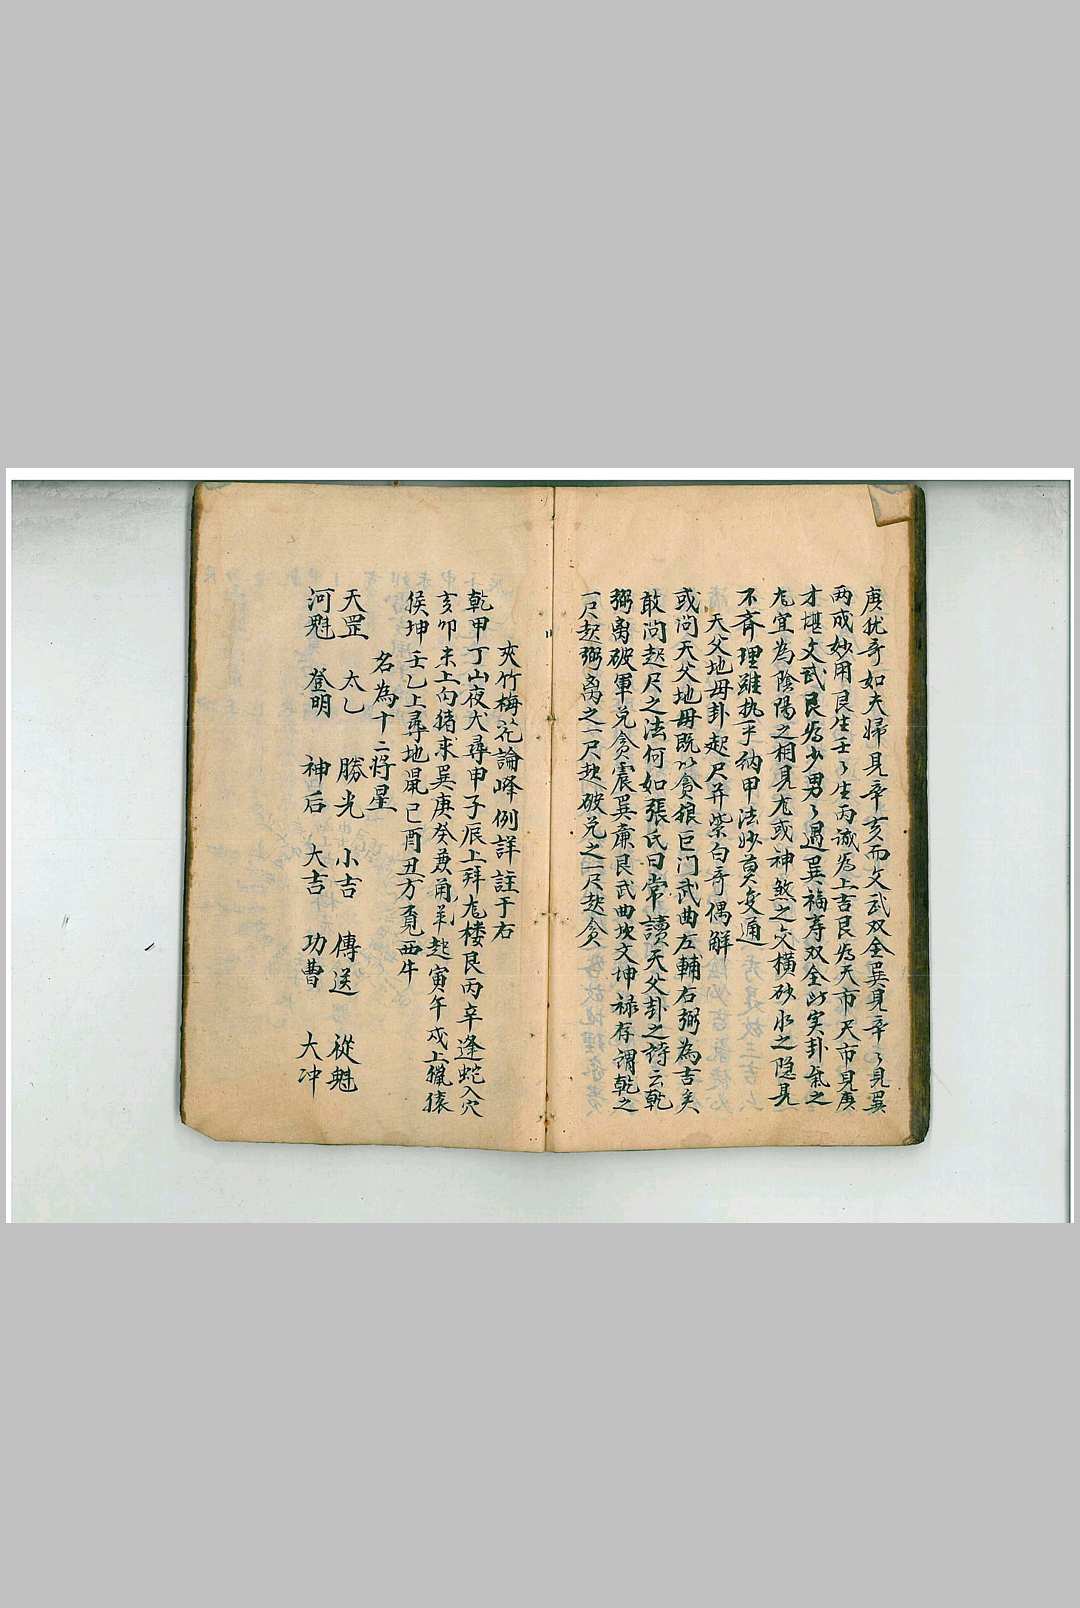 庚犹奇如夫婦見辛亥而文武双全巽見辛々見巽
兩成妙用艮生壬々生丙誠為上吉艮為天市天市見庚
才堪文武艮為少男々遇巽福寿双全此実卦氣之
尤宜為陰陽之相見尤或神煞之交横砂水之隐見
不齐理雖执乎納甲法妙莫变通
天父地母卦起尺并紫白奇偶解
或问天父地母既以貪狼巨门武曲左輔右弼為吉矣
敢问起尺之法何如張氏曰常讀天父卦之詩云乾
弼离破軍兑貪震巽廉艮武曲坎文坤禄存謂乾之
一尺起弼离之一尺起破兑之一尺起贪
夾竹梅花論峰例詳註于右
乾甲丁山夜犬尋申子辰上拜尨楼艮丙辛逢蛇入穴
亥卯未上向猪求巽庚癸兼角羊起寅午戍上獵猿
侯坤壬乙上尋地鼠巳酉丑方覓西牛
名為十二将星
天罡 太乙 勝光 小吉 傳送 從魁
河魁 登明 神后 大吉 功曹 大冲